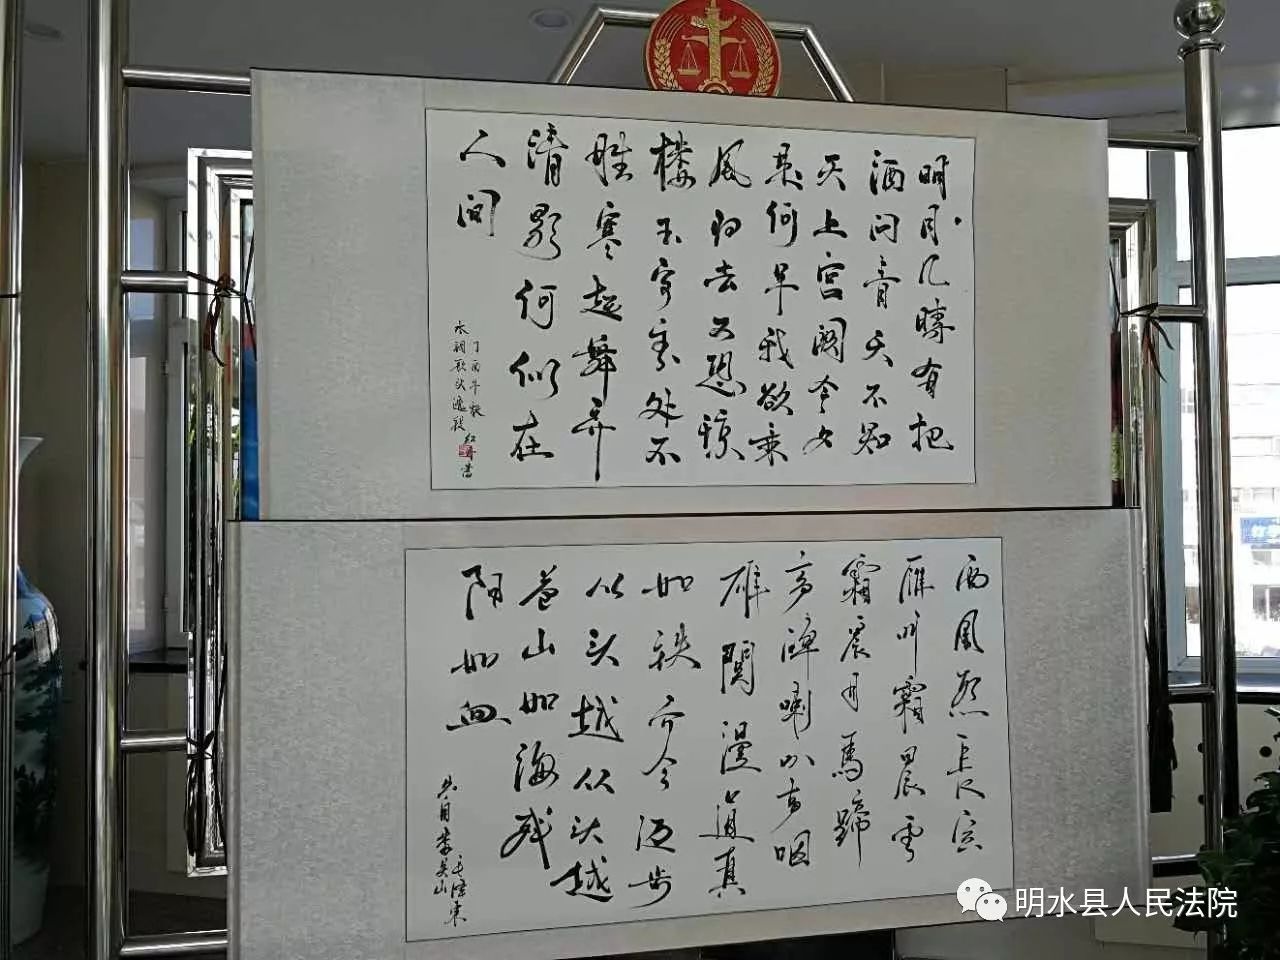 明月几時有把
酒问青天不知
天上宫阙今夕
是何年我欲乘
风归去又恐琼
楼玉宇高处不
胜寒起舞弄
清影何似在
人间
丁酉年秋
水调歌头選段
西風烈长空
雁叫霜晨
霜晨月馬蹄
声碎喇叭声咽
雄関漫道真
如铁而今迈步
从头越从头越
苍山如海残
陽如血
毛泽东
明水县人民法院